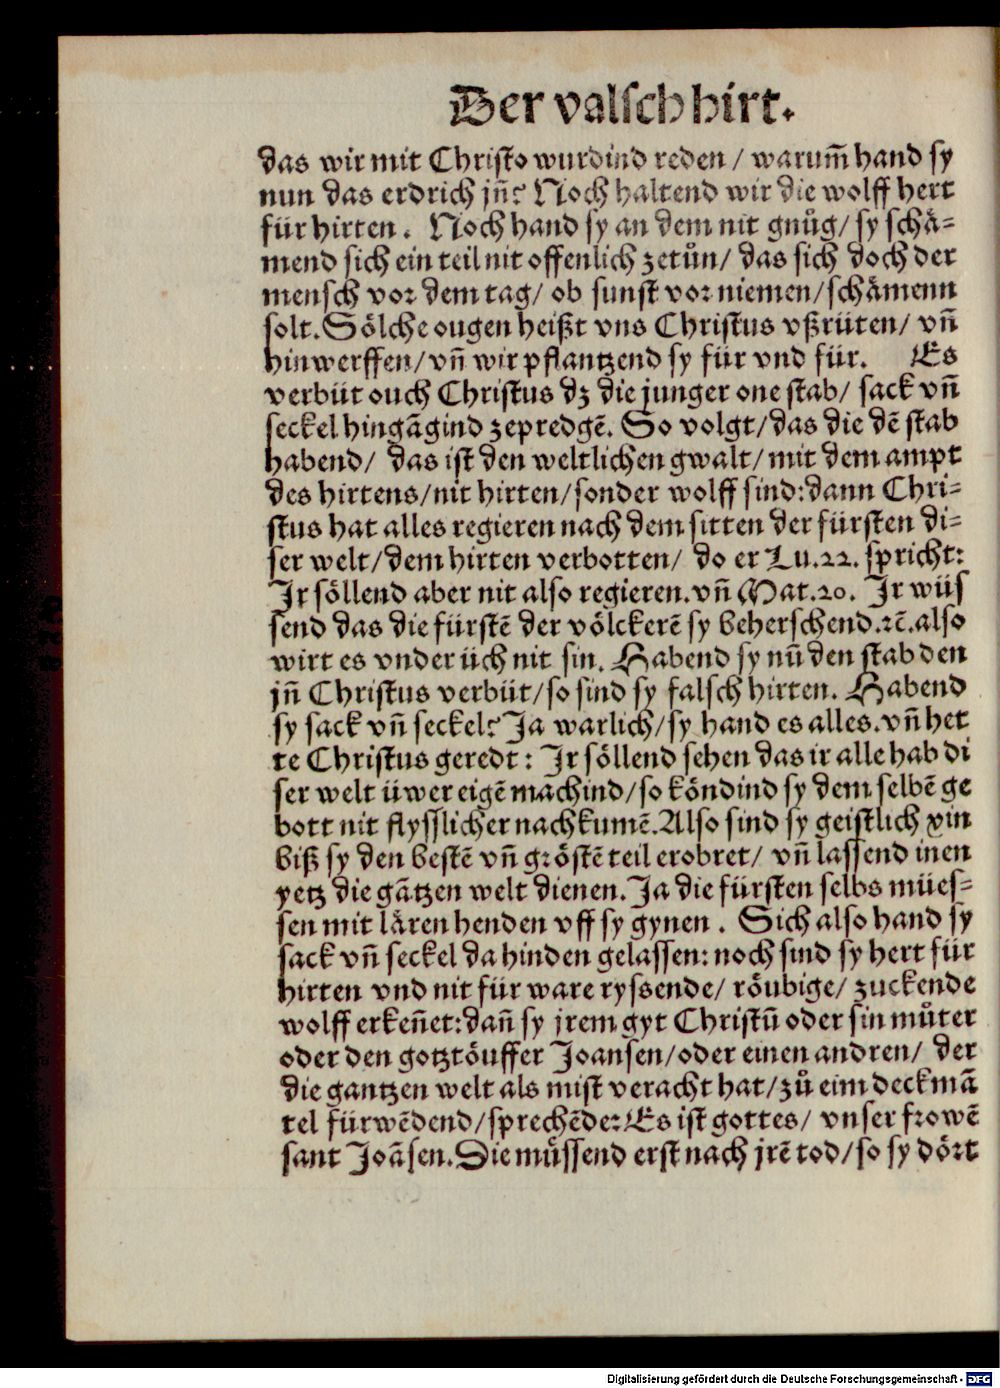 Der valsch hirt.
das wir mit Christo wurdind reden / warum̃ hand sy
nun das erdrich jñ? Noch haltend wir die wolff hert
für hirten. Noch hand sy an dem nit gnůg / sy schä-
mend sich ein teil nit offenlich zetůn / das sich doch der
mensch vor dem tag / ob sunst vor niemen / schämenn
solt. Sölche ougen heißt vns Christus vßrüten / vñ
hinwerffen / vñ wir pflantzend sy für vnd für. Es
verbüt ouch Christus dz die junger one stab / sack vñ
seckel hingãgind zepredgẽ. So volgt / das die dẽ stab
habend / das ist den weltlichen gwalt / mit dem ampt
des hirtens / nit hirten / sonder wolff sind: dann Chri-
stus hat alles regieren nach dem sitten der fürsten di-
ser welt / dem hirten verbotten / do er Lu. 22. spricht:
Ir söllend aber nit also regieren. vñ Mat. 20. Ir wüs
send das die fürstẽ der völckerẽ sy beherschend. ꝛc̃. also
wirt es vnder üch nit sin. Habend sy nũ den stab den
jñ Christus verbüt / so sind sy falsch hirten. Habend
sy sack vñ seckel? Ja warlich / sy hand es alles. vñ het
te Christus geredt: Ir söllend sehen das ir alle hab di
ser welt üwer eigẽ machind / so köndind sy dem selbẽ ge
bott nit flysslicher nachkumẽ. Also sind sy geistlich xin
biß sy den bestẽ vñ gröstẽ teil erobret / vñ lassend inen
yetz die gãtzen welt dienen. Ja die fürsten selbs mües-
sen mit lären henden vff sy gynen. Sich also hand sy
sack vñ seckel da hinden gelassen: noch sind sy hert für
hirten vnd nit für ware ryssende / röubige / zuckende
wolff erkeñet: dañ sy jrem gyt Christũ oder sin můter
oder den gotztöuffer Joansen / oder einen andren / der
die gantzen welt als mist veracht hat / zů eim deckmã
tel fürwẽdend / sprechẽde: Es ist gottes / vnser frowẽ
sant Joãsen. Sie müssend erst nach jrẽ tod / so sy dört
Digitalisierung gefördert durch die Deutsche Forschungsgemeinschaft - DFG